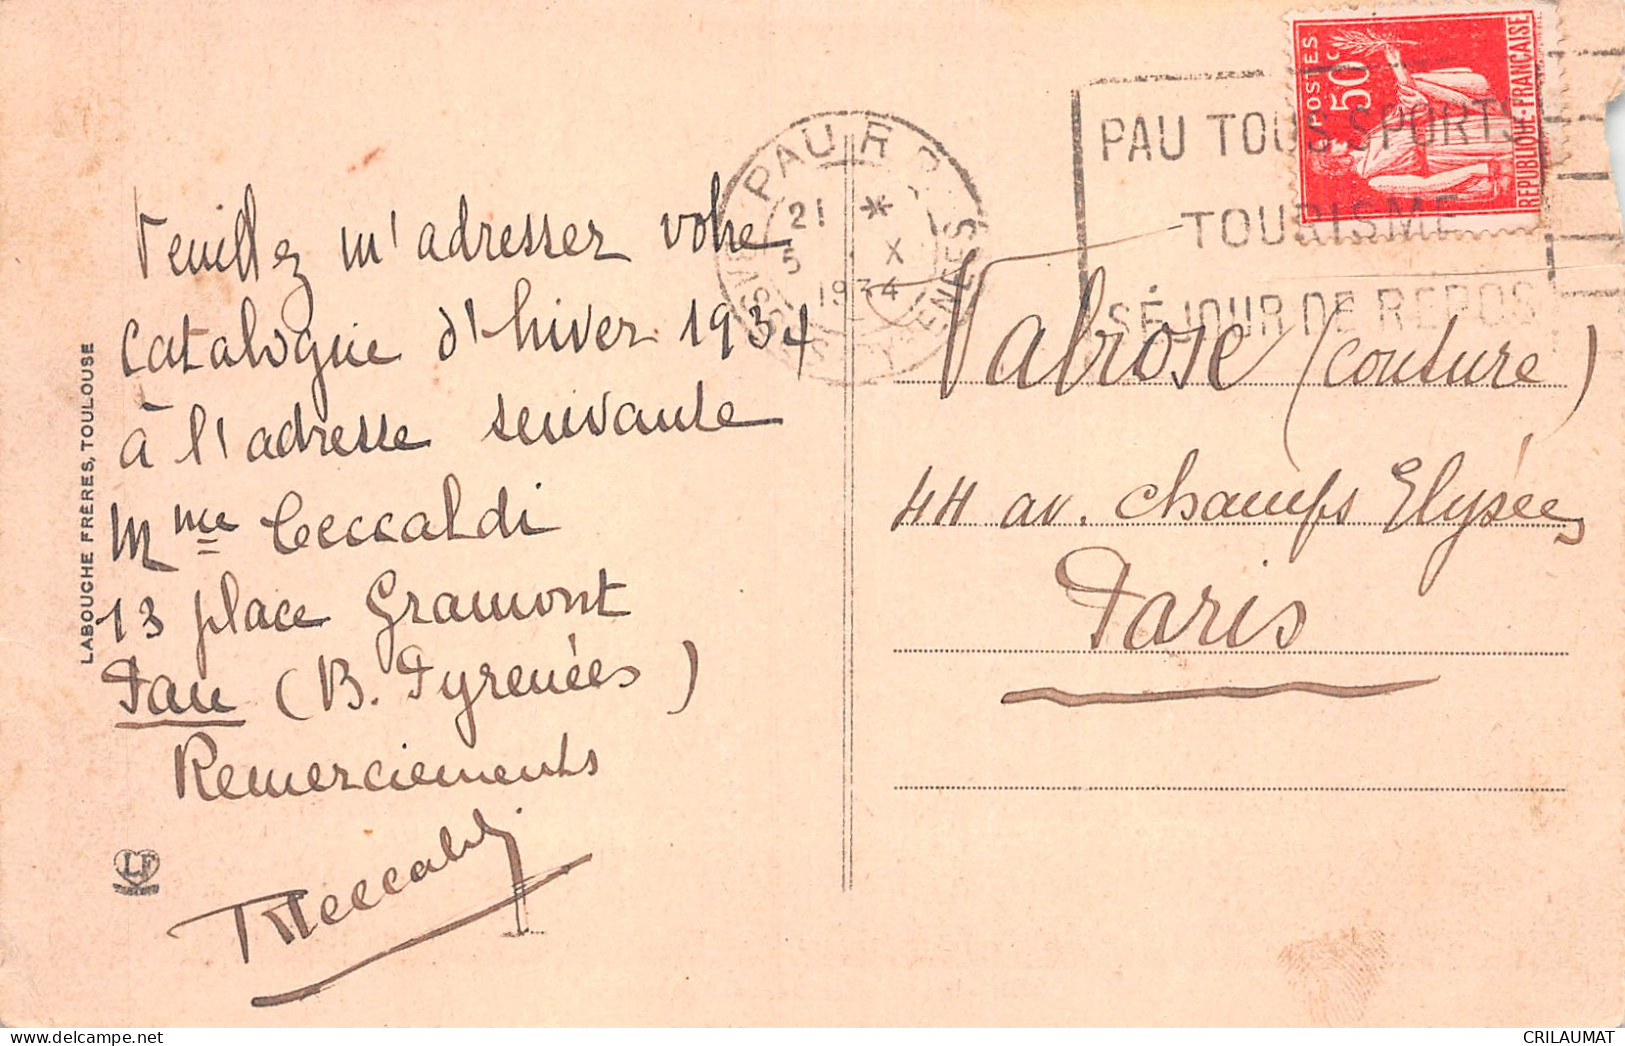 Veuillez m'adresser votre
catalogue d'hiver 1934
à l'adresse suivante
Mme Ceccaldi
13 place Gramont
Pau (B. Pyrenées)
Remerciements
Ceccaldi
LABOUCHE FRÈRES, TOULOUSE
LF
PAU R.P.
21 *
5 X
1934
BASSES PYRENEES
POSTES
50c
REPUBLIQUE-FRANÇAISE
PAU TOUS SPORTS
TOURISME
SÉJOUR DE REPOS
Valrose (couture)
44 av. Champs Elysées
Paris
CRILAUMAT